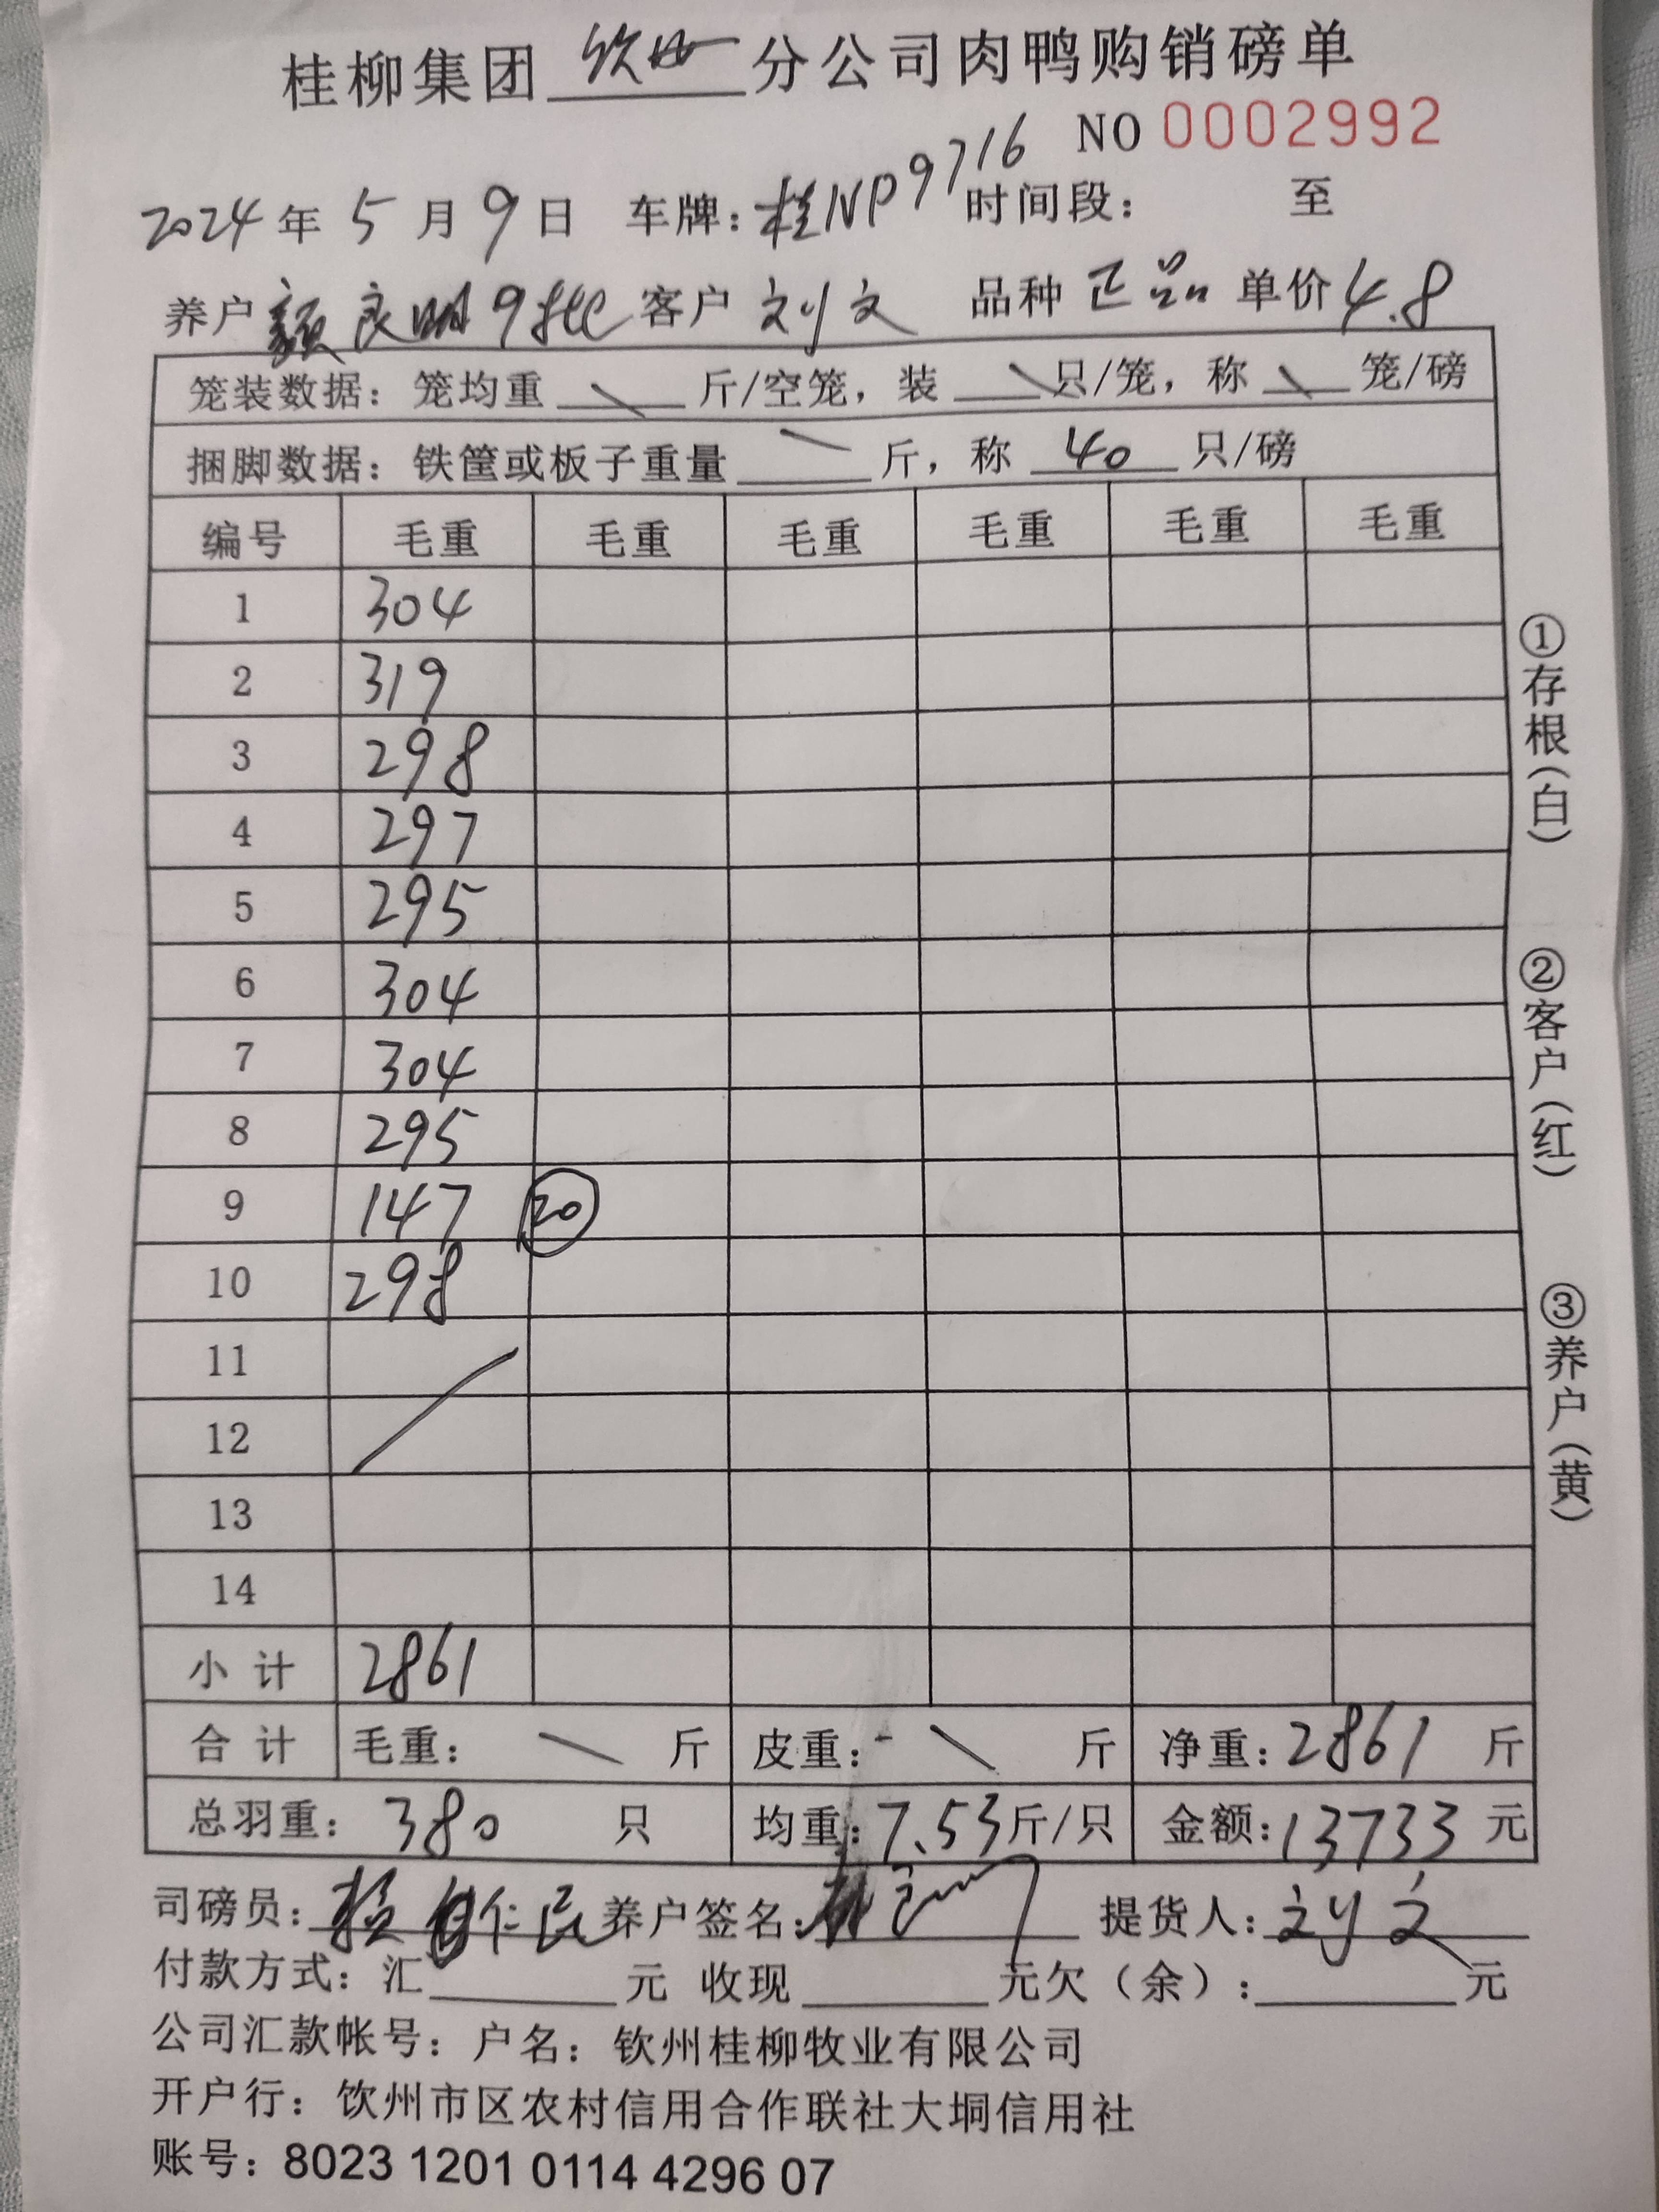 桂柳集团 钦州 分公司肉鸭购销磅单
NO 0002992
2024 年 5 月 9 日 车牌: 桂NP9716 时间段: 至
养户 颜良明9批 客户 刘文 品种 正品 单价 4.8
笼装数据: 笼均重 \ 斤/空笼, 装 \ 只/笼, 称 \ 笼/磅
捆脚数据: 铁筐或板子重量 \ 斤, 称 40 只/磅
编号 毛重 毛重 毛重 毛重 毛重 毛重
1 304
2 319
3 298
4 297
5 295
6 304
7 304
8 295
9 147 20
10 298
11
12
13
14
小 计 2861
合 计 毛重: \ 斤 皮重: \ 斤 净重: 2861 斤
总羽重: 380 只 均重: 7.53 斤/只 金额: 13733 元
司磅员: 养户签名: 提货人: 刘文
付款方式: 汇 元 收现 元 欠（余）: 元
公司汇款帐号: 户名: 钦州桂柳牧业有限公司
开户行: 钦州市区农村信用合作联社大垌信用社
账号: 8023 1201 0114 4296 07
①存根(白)
②客户(红)
③养户(黄)